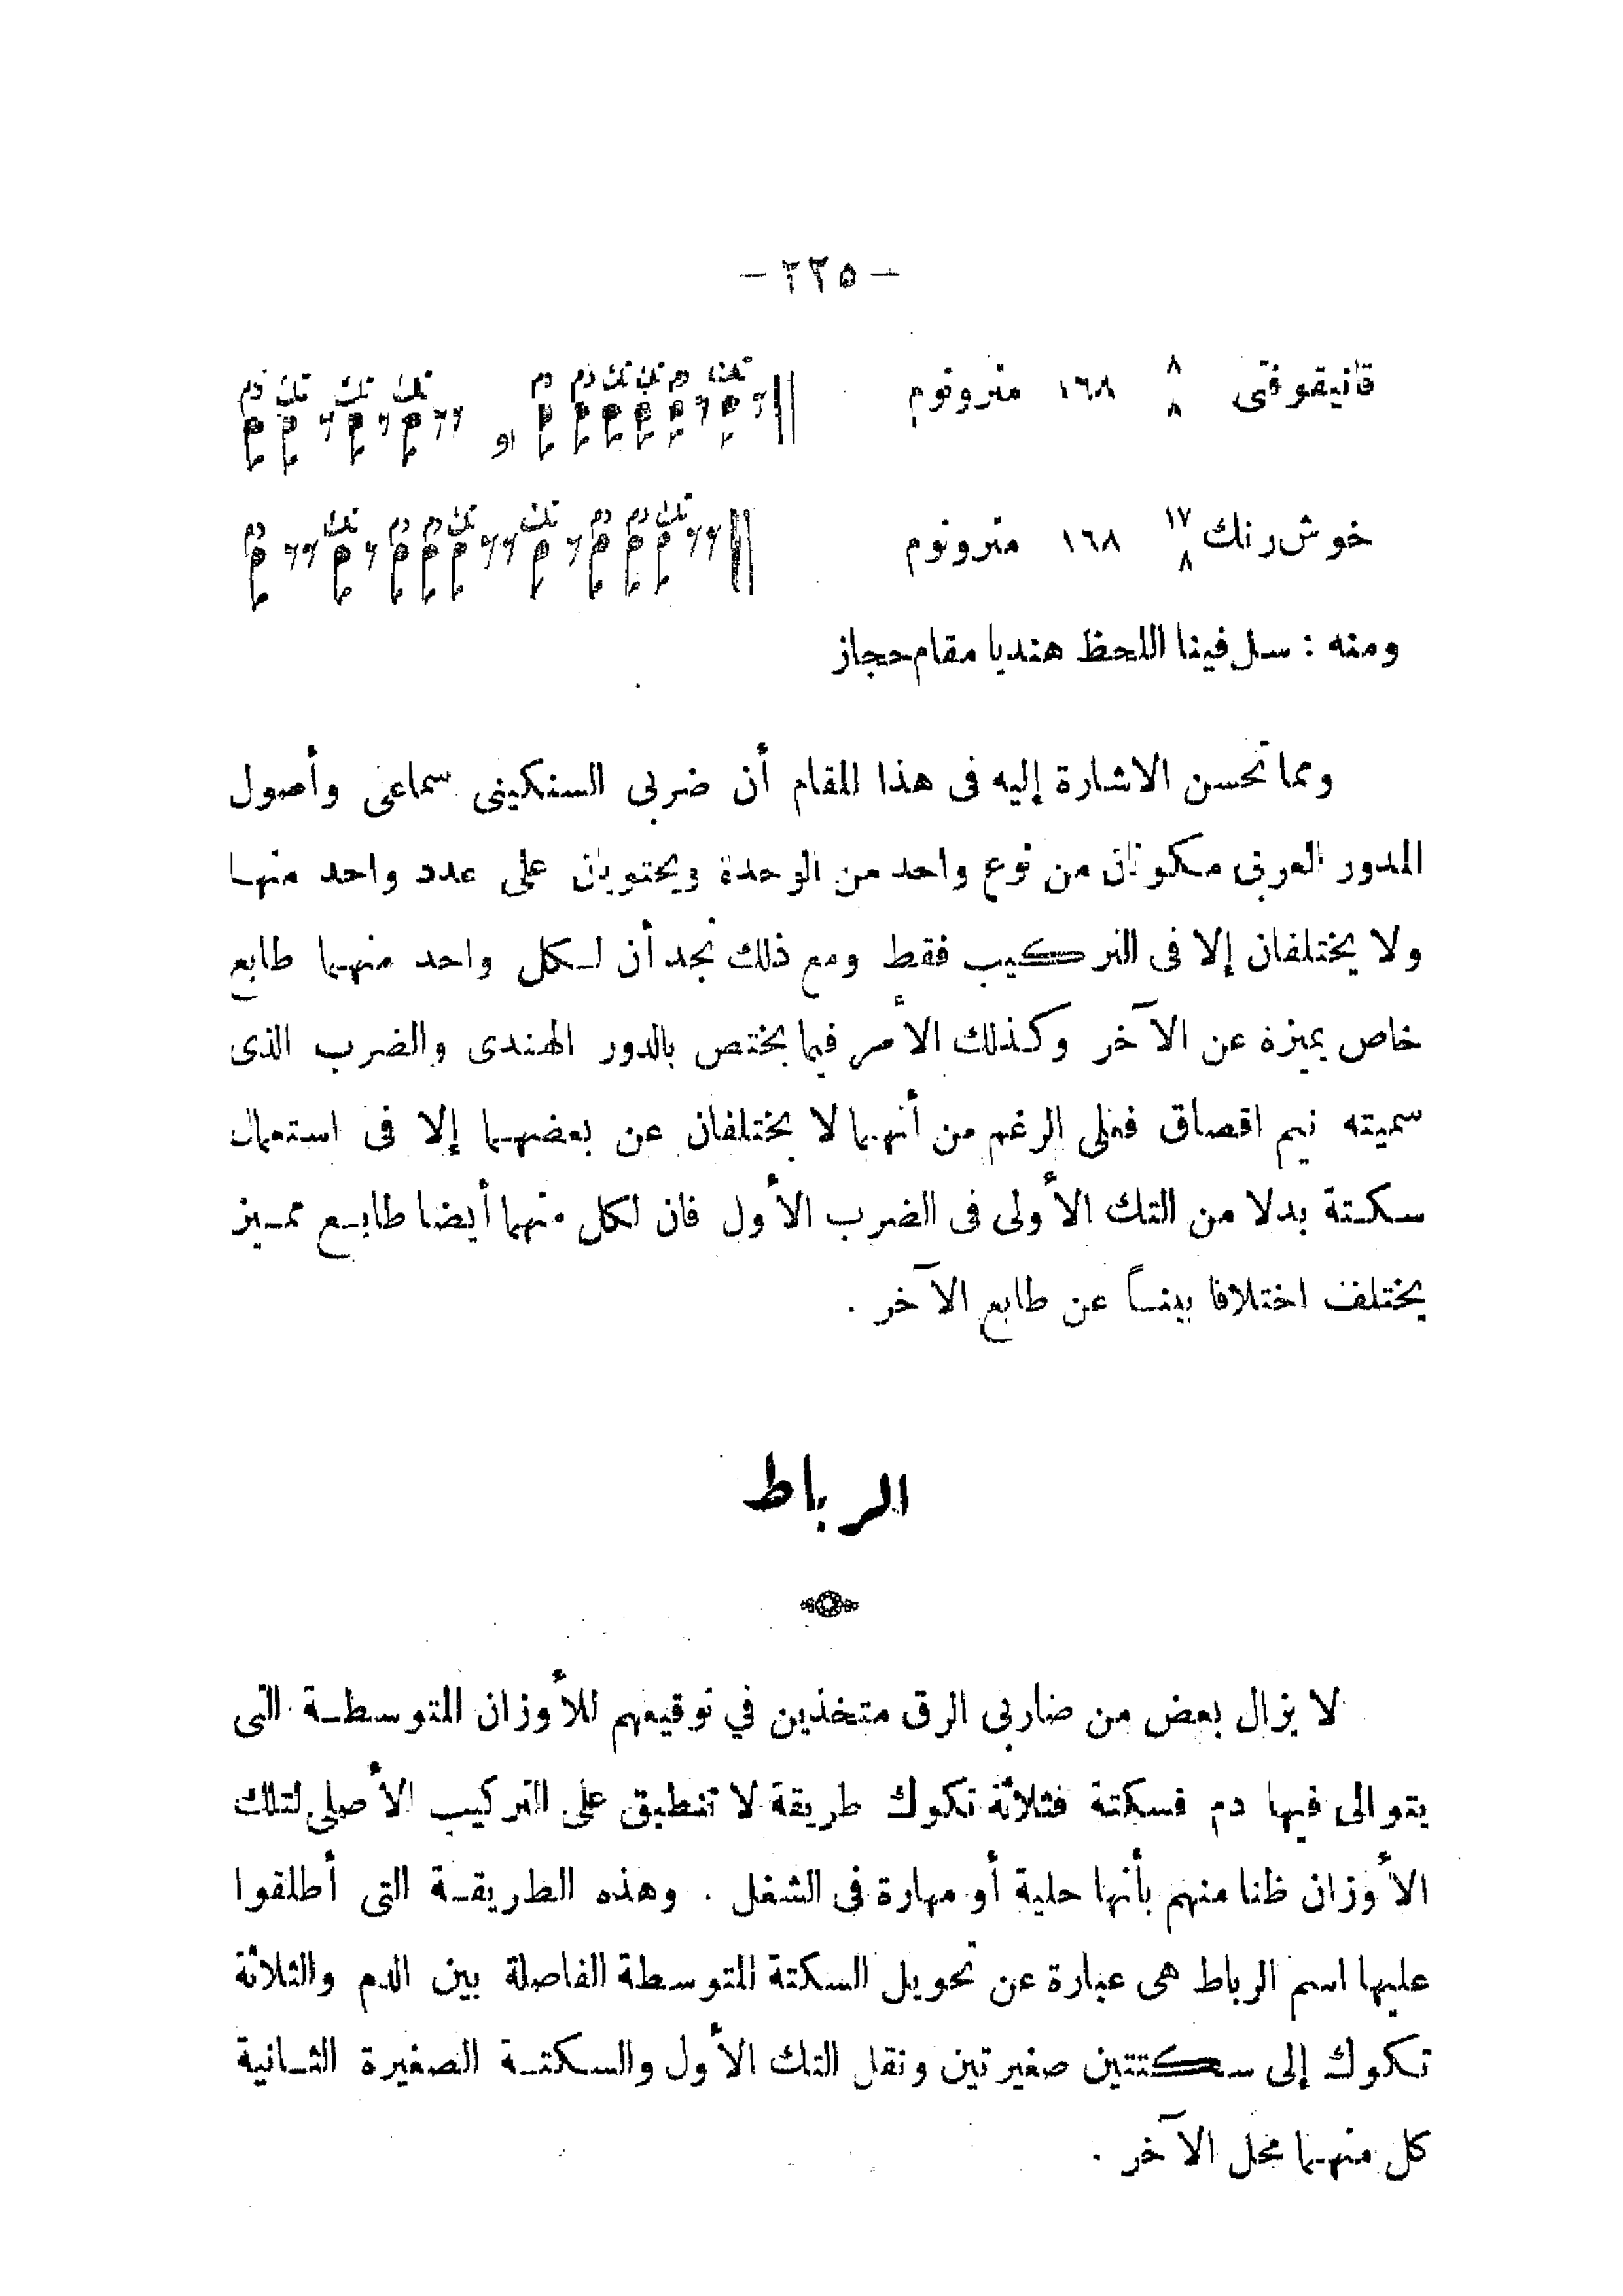 — ٢٢٥ —
قانيقوفتى ٨ ٨ ١٦٨ مترونوم
دم تك تك تك او دم دم تك تك دم تك
خوش رنك ١٧ ٨ ١٦٨ مترونوم
دم تك دم دم تك تك دم دم تك
ومنه : سل فينا اللحظ هنديا مقام حجاز
ومما تحسن الاشارة إليه فى هذا المقام أن ضربى السنكينى سماعى وأصول
المدور العربى مكونان من نوع واحد من الوحدة ويحتويان على عدد واحد منهـا
ولا يختلفان إلا فى التركيب فقط ومع ذلك نجد أن لـكل واحد منهـما طابع
خاص يميزه عن الآخر وكذلك الأمر فيما يختص بالدور الهندى والضرب الذى
سميته نيم اقصاق فعلى الرغم من أنهـما لا يختلفان عن بعضهـما إلا فى استعمال
سكـتة بدلا من التك الأولى فى الضرب الأول فان لكل منهما أيضا طابـع ممـيز
يختلف اختلافا بينـاً عن طابع الآخر .
الرباط
لا يزال بعض من ضاربى الرق متخذين في توقيعهم للأوزان المتوسطـة التى
يتوالى فيها دم فسكتة فثلاثة تكوك طريقة لا تنطبق على التركيب الأصلى لتلك
الأوزان ظنا منهم بأنها حلية أو مهارة فى الشغل . وهذه الطريقـة التى أطلقوا
عليها اسم الرباط هى عبارة عن تحويل السكتة المتوسطة الفاصلة بين الدم والثلاثة
تـكوك إلى سـكتتين صغيرتين ونقل التك الأول والسكتـة الصغيرة الثـانية
كل منهـما محل الآخر .